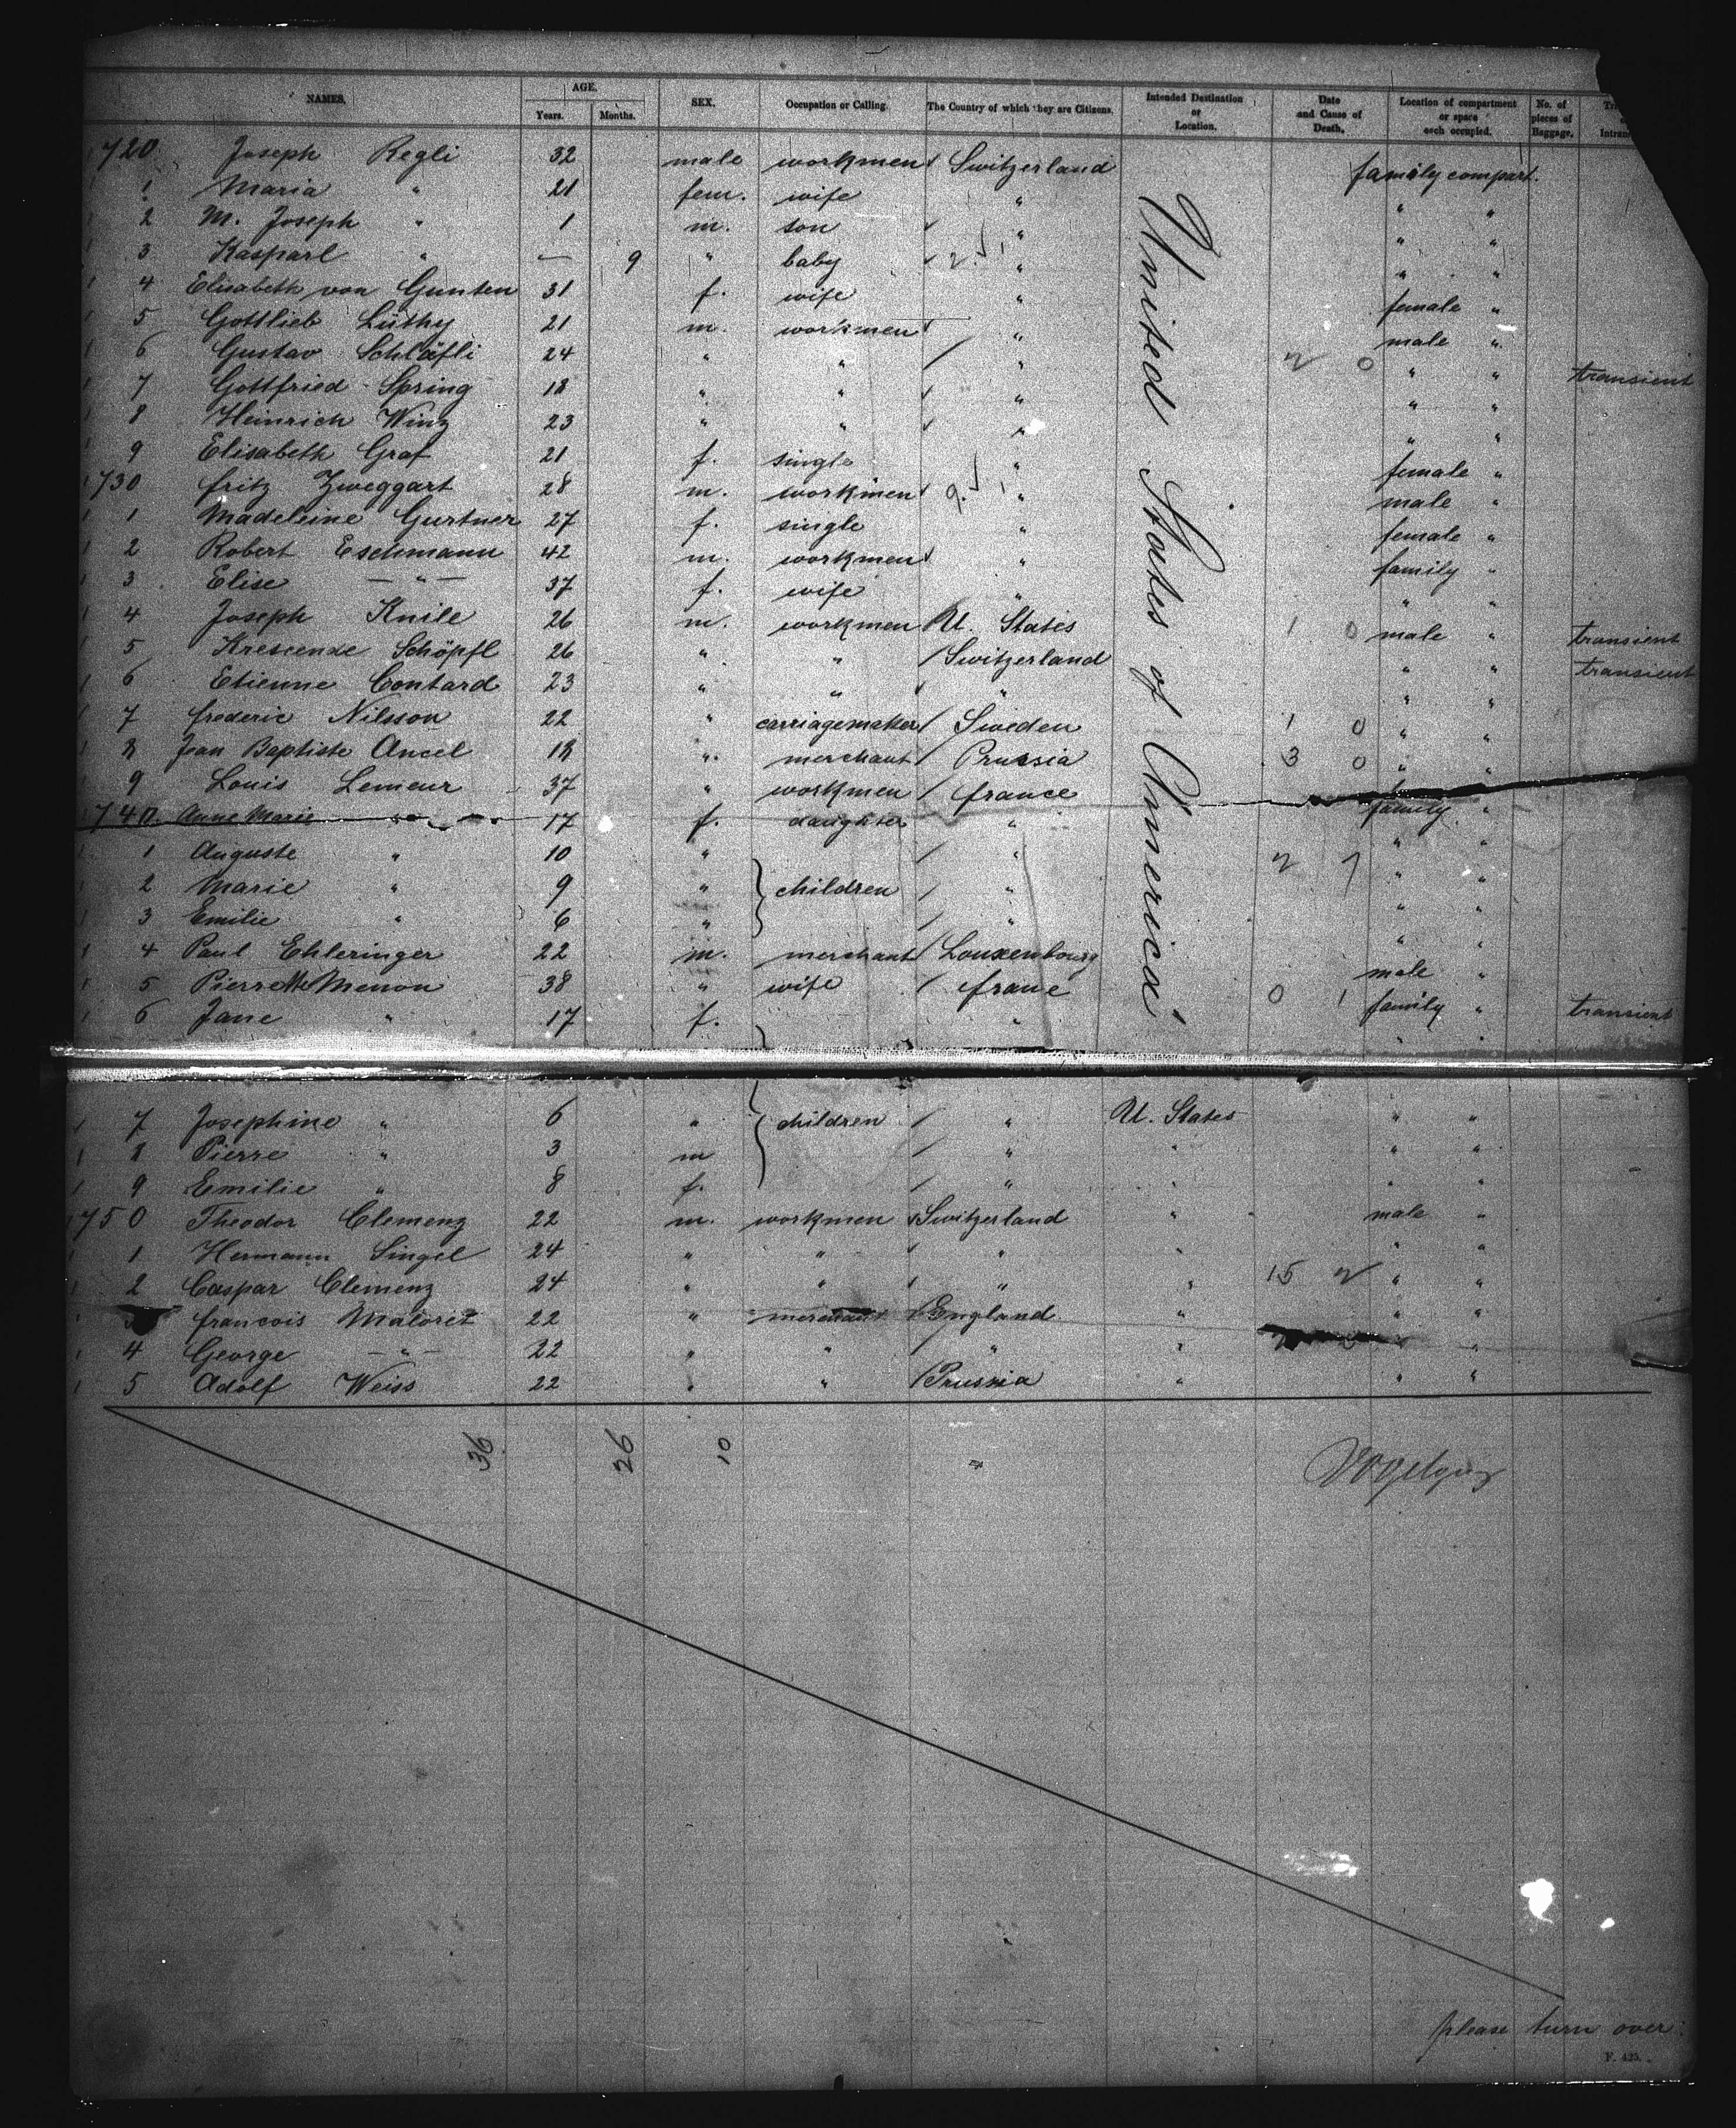 NAMES. AGE. Years. Months. SEX. Occupation or Calling. The Country of which they are Citizens. Intended Destination or Location. Date and Cause of Death. Location of compartment or space each occupied. No. of pieces of Baggage.
720 Joseph Regli 32 male workmen Switzerland family compart.
1 Maria " 21 fem. wife " " "
2 M. Joseph " 1 m. son " " "
3 Kasparl " — 9 " baby " " "
4 Elisabeth von Gunten 31 f. wife " female "
5 Gottlieb Lüthy 21 m. workmen " male "
6 Gustav Schläfli 24 " " " 2 0 " " transient
7 Gottfried Spring 18 " " " " "
8 Heinrich Winz 23 " " " " "
9 Elisabeth Graf 21 f. single " female "
730 Fritz Zweggart 28 m. workmen " male "
1 Madeleine Gurtner 27 f. single " female "
2 Robert Eschmann 42 m. workmen " family "
3 Elise —"— 37 f. wife " " "
4 Joseph Knile 26 m. workmen U. States 1 0 male " transient
5 Krescenze Schöpfl 26 " " Switzerland " " transient
6 Etienne Contard 23 " " " " "
7 frederic Nilsson 22 " carriagemaker Sweden 1 0 " "
8 Jean Baptiste Ancel 18 " merchant Prussia 3 0 " "
9 Louis Lemeur 37 " workmen france family "
740 Anne Marie " 17 f. daughter " " "
1 Auguste " 10 " " 2 7 " "
2 Marie " 9 " children " " "
3 Emilie " 6 " " " "
4 Paul Ehleringer 22 m. merchant Louxenbourg male "
5 Pierrette Menon 38 " wife frane 0 1 family " transient
6 Jane " 17 f. " " "
United States of America
7 Josephine " 6 " children " U. States " "
8 Pierre " 3 m " " " "
9 Emilie " 8 f. " " " "
750 Theodor Clemenz 22 m. workmen Switzerland " male "
1 Hermann Singel 24 " " " " " "
2 Caspar Clemenz 24 " " " " 15 2 " "
francois Maloret 22 " merchant England " " "
4 George —"— 22 " " " " " "
5 Adolf Weiss 22 " " Prussia " " "
36 26 10
please turn over.
F. 425.